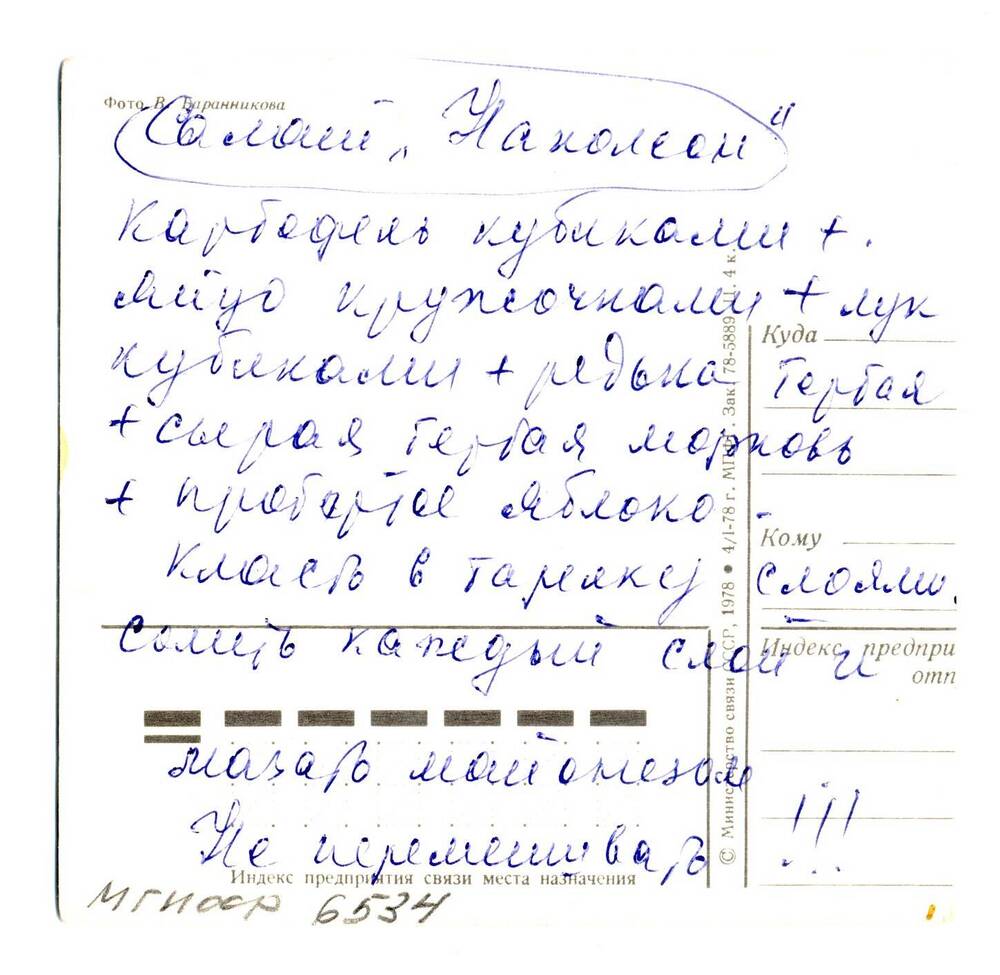 Фото В. Баранникова
Салат „Наполеон"
Картофель кубиками +
яйцо кружочками + лук
кубиками + редька тертая
+ сырая тертая морковь
+ протертое яблоко
Класть в тарелку слоями.
Солить каждый слой и
мазать майонезом
Не перемешивать !!!
Куда
Кому
Индекс предпри
отп
Индекс предприятия связи места назначения
© Министерство связи СССР, 1978 • 4/I-78 г. Зак. 78-5889 4 к.
6534